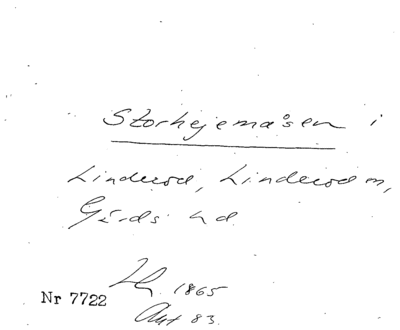 Storhejemåsen i
Linderöd, Linderöd sn,
Gärds hd
1865
Nr 7722
Akt 83.